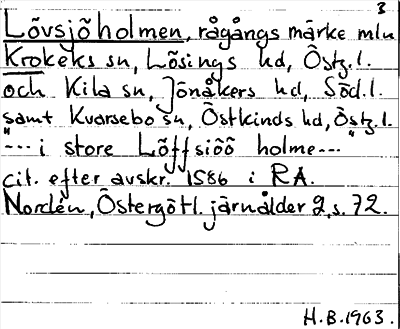 3
Lövsjöholmen, rågångsmärke mln
Krokeks sn, Lösings hd, Östg.l.
och Kila sn, Jönåkers hd, Söd.l.
samt Kvarsebo sn, Östkinds hd, Östg.l.
"--- i store Löffsiöö holme---"
cit. efter avskr. 1586 i RA.
Nordén, Östergötl. järnålder 2, s. 72.
H.B.1963.